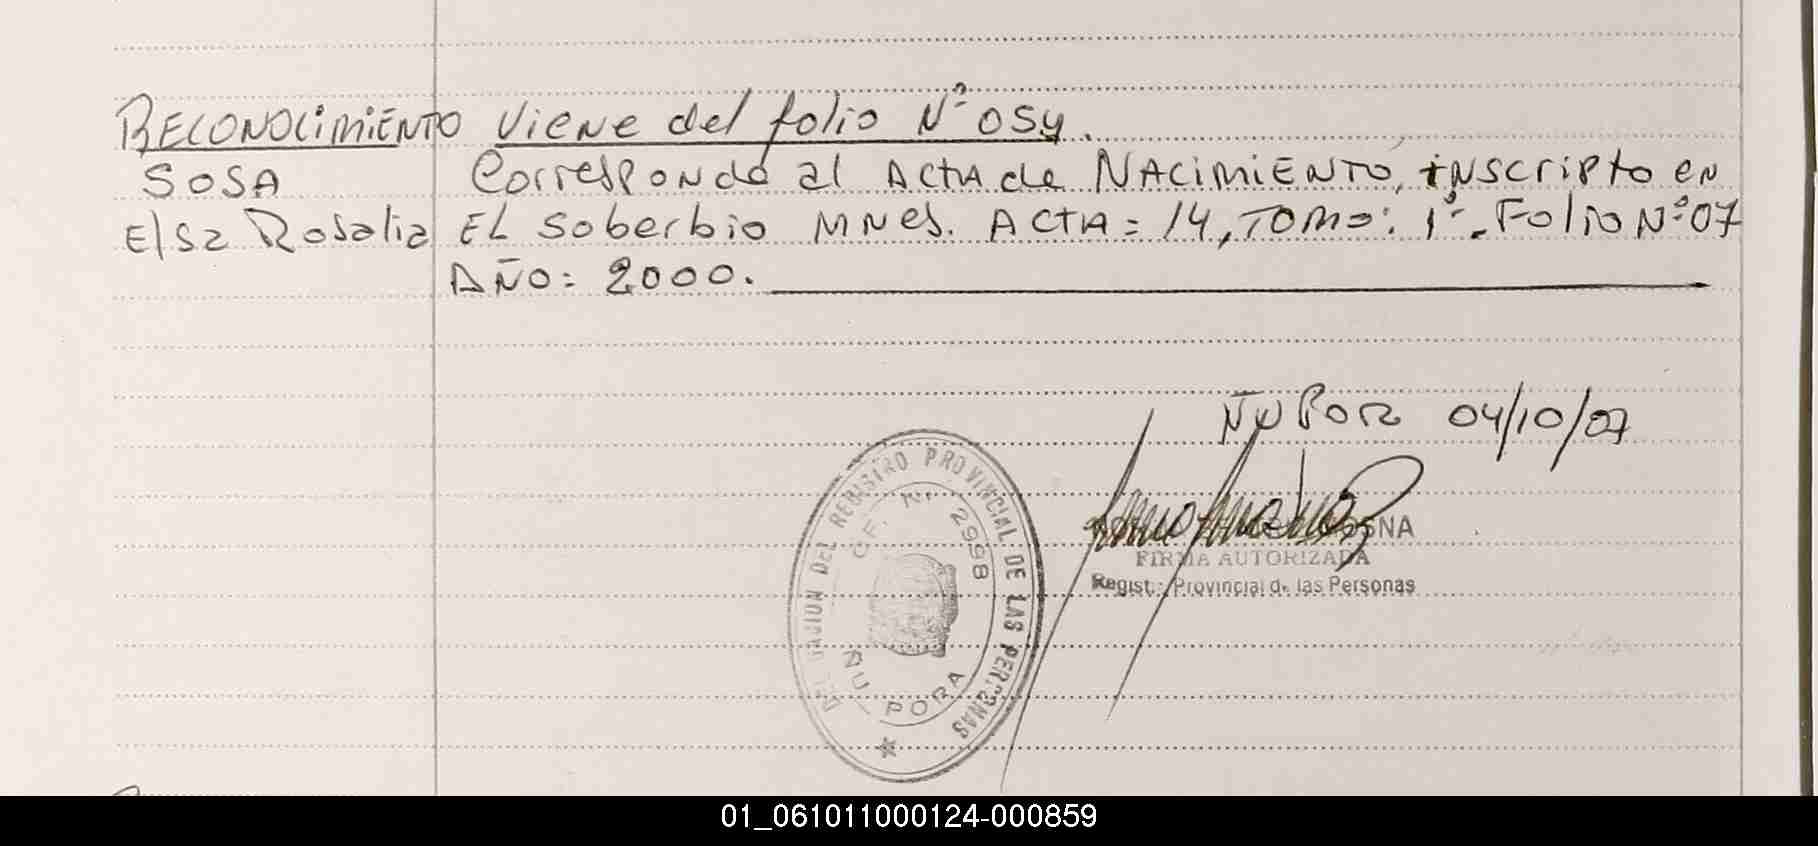 RECONOCIMIENTO Viene del folio Nº 054.
SOSA Corresponde al Acta de NACIMIENTO, inscripto en
Elsa Rosalia EL Soberbio MNes. ACTA = 14, TOMO: 1º. Folio Nº 07
AÑO: 2000.
ÑU PORA 04/10/07
DELEGACION DEL REGISTRO PROVINCIAL DE LAS PERSONAS
OF. N. 2998
ÑU PORA
FIRMA AUTORIZADA
Regist. Provincial de las Personas
01_061011000124-000859